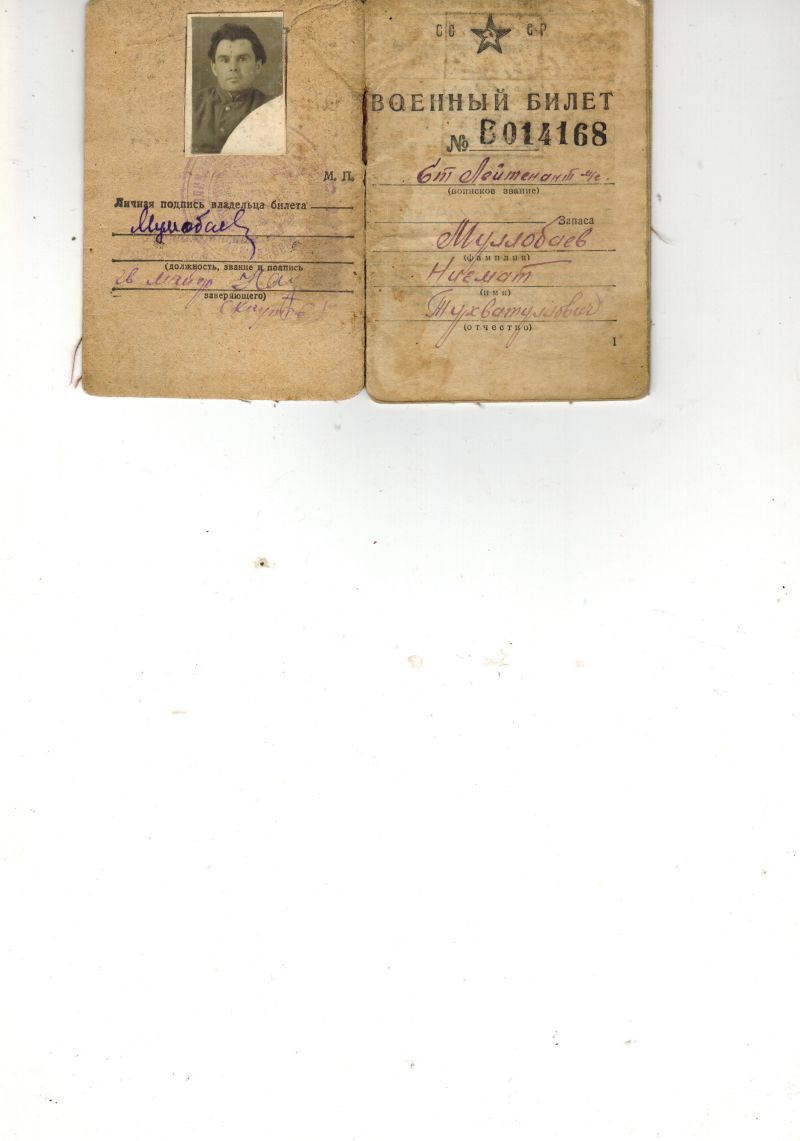 М. П.
Личная подпись владельца билета
Муллобаев
(должность, звание и подпись
майор
заверяющего)
СС СР
ВОЕННЫЙ БИЛЕТ
№ В014168
Ст Лейтенант м/с.
(воинское звание)
Запаса
Муллобаев
(фамилия)
Нигмат
(имя)
Тухватуллович
(отчество)
1